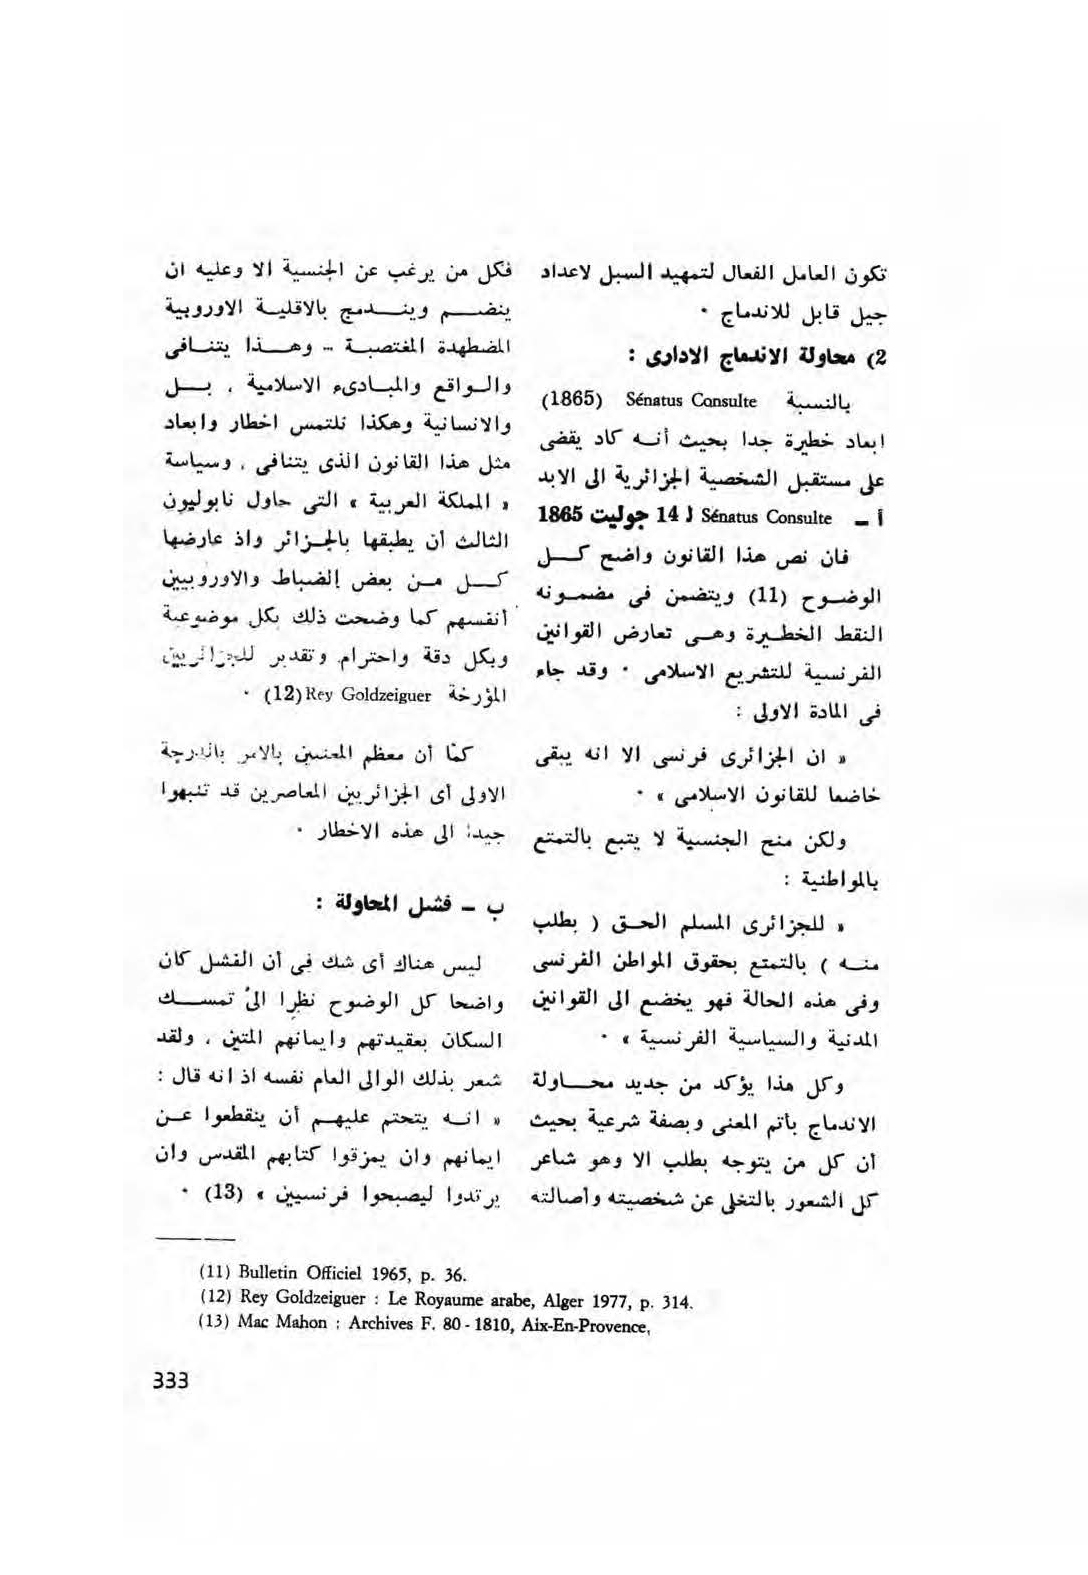 تكون العامل الفعال لتمهيد السبل لاعداد
جيل قابل للاندماج ·
2) محاولة الاندماج الادارى :
بالنسبة Sénatus Consulte (1865)
ابعاد خطيرة جدا بحيث أنه كاد يقضى
على مستقبل الشخصية الجزائرية الى الابد
أ ـ Sénatus Consulte لـ 14 جوليت 1865
فان نص هذا القانون واضح كل
الوضوح (11) ويتضمن فى مضمونه
النقط الخطيرة وهى تعارض القوانين
الفرنسية للتشريع الاسلامى · وقد جاء
فى المادة الاولى :
« ان الجزائرى فرنسى الا انه يبقى
خاضعا للقانون الاسلامى » ·
ولكن منح الجنسية لا يتبع بالتمتع
بالمواطنية :
« للجزائرى المسلم الحق ( بطلب
منه ) بالتمتع بحقوق المواطن الفرنسى
وفى هذه الحالة فهو يخضع الى القوانين
المدنية والسياسية الفرنسية » ·
وكل هذا يؤكد من جديد محاولة
الاندماج بأتم المعنى وبصفة شرعية بحيث
أن كل من يتوجه بطلب الا وهو شاعر
كل الشعور بالتخلى عن شخصيته وأصالته
فكل من يرغب عن الجنسية الا وعليه ان
ينضم ويندمج بالاقلية الاوروبية
المضطهدة المغتصبة .. وهذا يتنافى
والواقع والمبادىء الاسلامية ، بل
والانسانية وهكذا نلتمس أخطار وابعاد
مثل هذا القانون الذى يتنافى ، وسياسة
« المملكة العربية » التى حاول نابوليون
الثالث أن يطبقها بالجزائر واذ عارضها
كل من بعض الضباط والاوروبيين
أنفسهم كما وضحت ذلك بكل موضوعية
وبكل دقة واحترام وتقدير للجزائريين
المؤرخة Rey Goldzeiguer (12) ·
كما أن معظم المعنيين بالامر بالدرجة
الاولى أى الجزائريين المعاصرين قد تنبهوا
جيدا الى هذه الاخطار ·
ب ـ فشل المحاولة :
ليس هناك أى شك فى أن الفشل كان
واضحا كل الوضوح نظرا الى تمسك
السكان بعقيدتهم وايمانهم المتين ، ولقد
شعر بذلك الوالى العام نفسه اذ انه قال :
« انه يتحتم عليهم أن ينقطعوا عن
ايمانهم وان يمزقوا كتابهم المقدس وان
يرتدوا ليصبحوا فرنسيين » (13) ·
(11) Bulletin Officiel 1965, p. 36.
(12) Rey Goldzeiguer : Le Royaume arabe, Alger 1977, p. 314.
(13) Mac Mahon : Archives F. 80 - 1810, Aix-En-Provence,
333